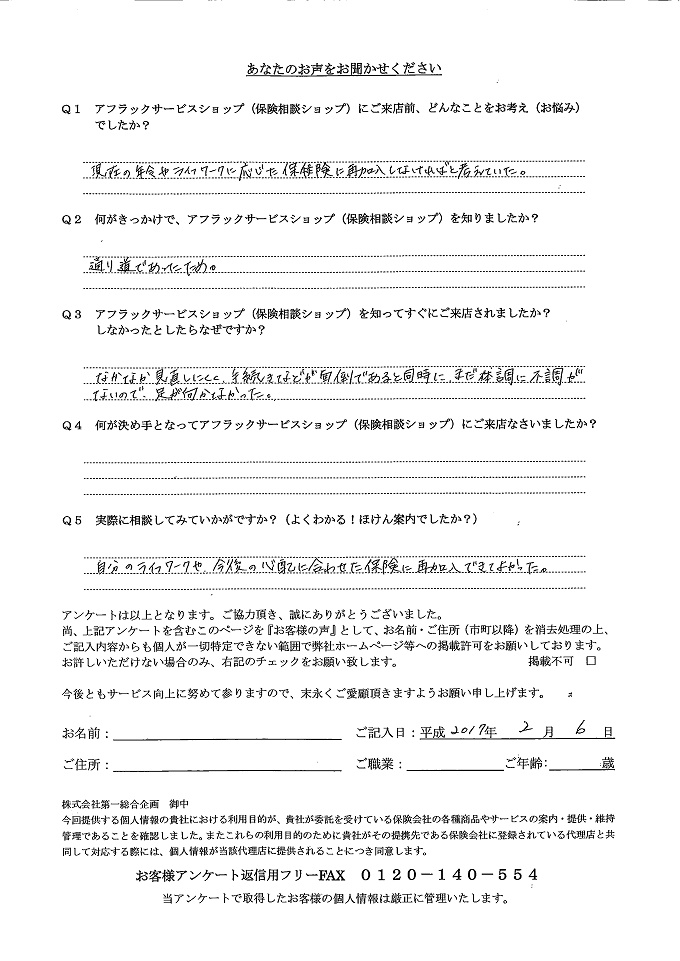 あなたのお声をお聞かせください
Q1 アフラックサービスショップ（保険相談ショップ）にご来店前、どんなことをお考え（お悩み）
でしたか？
現在の年令やライフワークに応じた保険に再加入しなければと考えていた。
Q2 何がきっかけで、アフラックサービスショップ（保険相談ショップ）を知りましたか？
通り道であったため。
Q3 アフラックサービスショップ（保険相談ショップ）を知ってすぐにご来店されましたか？
しなかったとしたらなぜですか？
なかなか見直しにくく、手続きなどが面倒であると同時に、まだ体調に不調が
ないので、足が向かなかった。
Q4 何が決め手となってアフラックサービスショップ（保険相談ショップ）にご来店なさいましたか？
Q5 実際に相談してみていかがですか？（よくわかる！ほけん案内でしたか？）
自分のライフワークや、今後の心配に合わせた保険に再加入できてよかった。
アンケートは以上となります。ご協力頂き、誠にありがとうございました。
尚、上記アンケートを含むこのページを『お客様の声』として、お名前・ご住所（市町以降）を消去処理の上、
ご記入内容からも個人が一切特定できない範囲で弊社ホームページ等への掲載許可をお願いしております。
お許しいただけない場合のみ、右記のチェックをお願い致します。 掲載不可 □
今後ともサービス向上に努めて参りますので、末永くご愛顧頂きますようお願い申し上げます。
お名前： ご記入日：平成 2017年 2 月 6 日
ご住所： ご職業： ご年齢: 歳
株式会社第一総合企画 御中
今回提供する個人情報の貴社における利用目的が、貴社が委託を受けている保険会社の各種商品やサービスの案内・提供・維持
管理であることを確認しました。またこれらの利用目的のために貴社がその提携先である保険会社に登録されている代理店と共
同して対応する際には、個人情報が当該代理店に提供されることにつき同意します。
お客様アンケート返信用フリーFAX 0120－140－554
当アンケートで取得したお客様の個人情報は厳正に管理いたします。